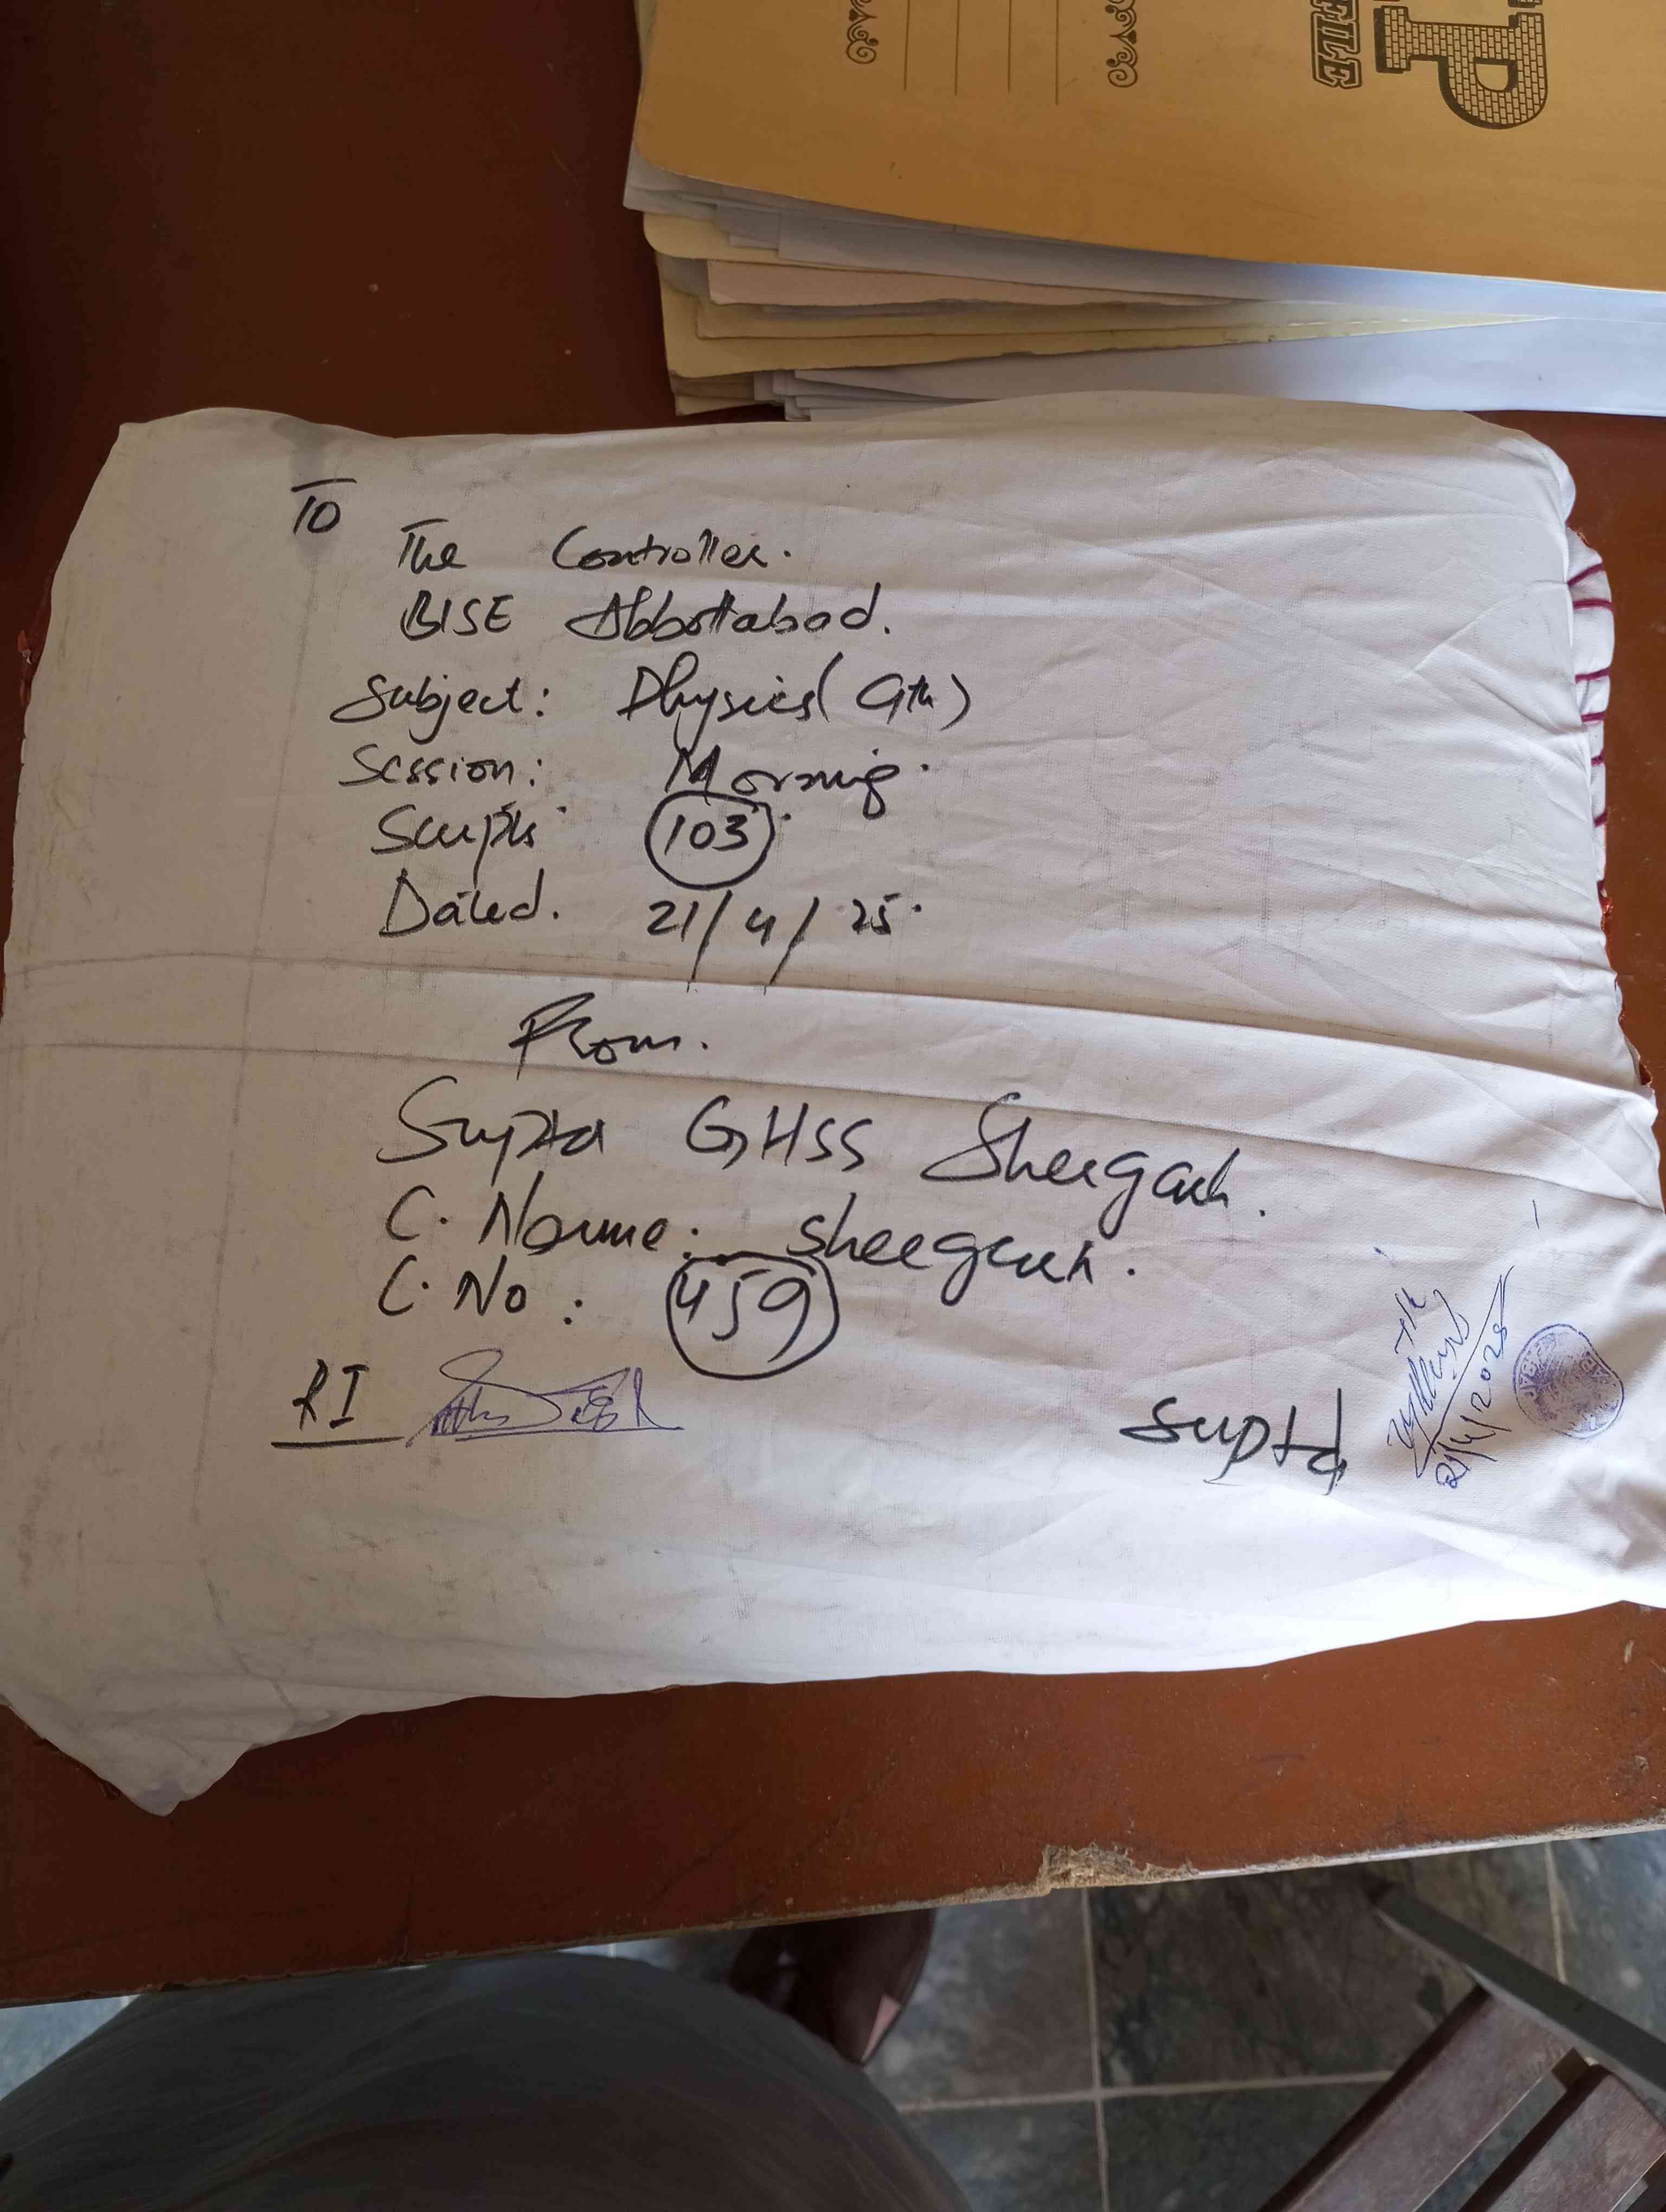 P
FILE
To
The Controller.
BISE Abbottabad.
Subject: Physics (9th)
Session: Morning.
Scripts 103.
Dated. 21/4/25.
From.
Suptd GHSS Sheergarh.
C. Name: Sheergarh.
C. No: 459
RI
Suptd
21/4/2025